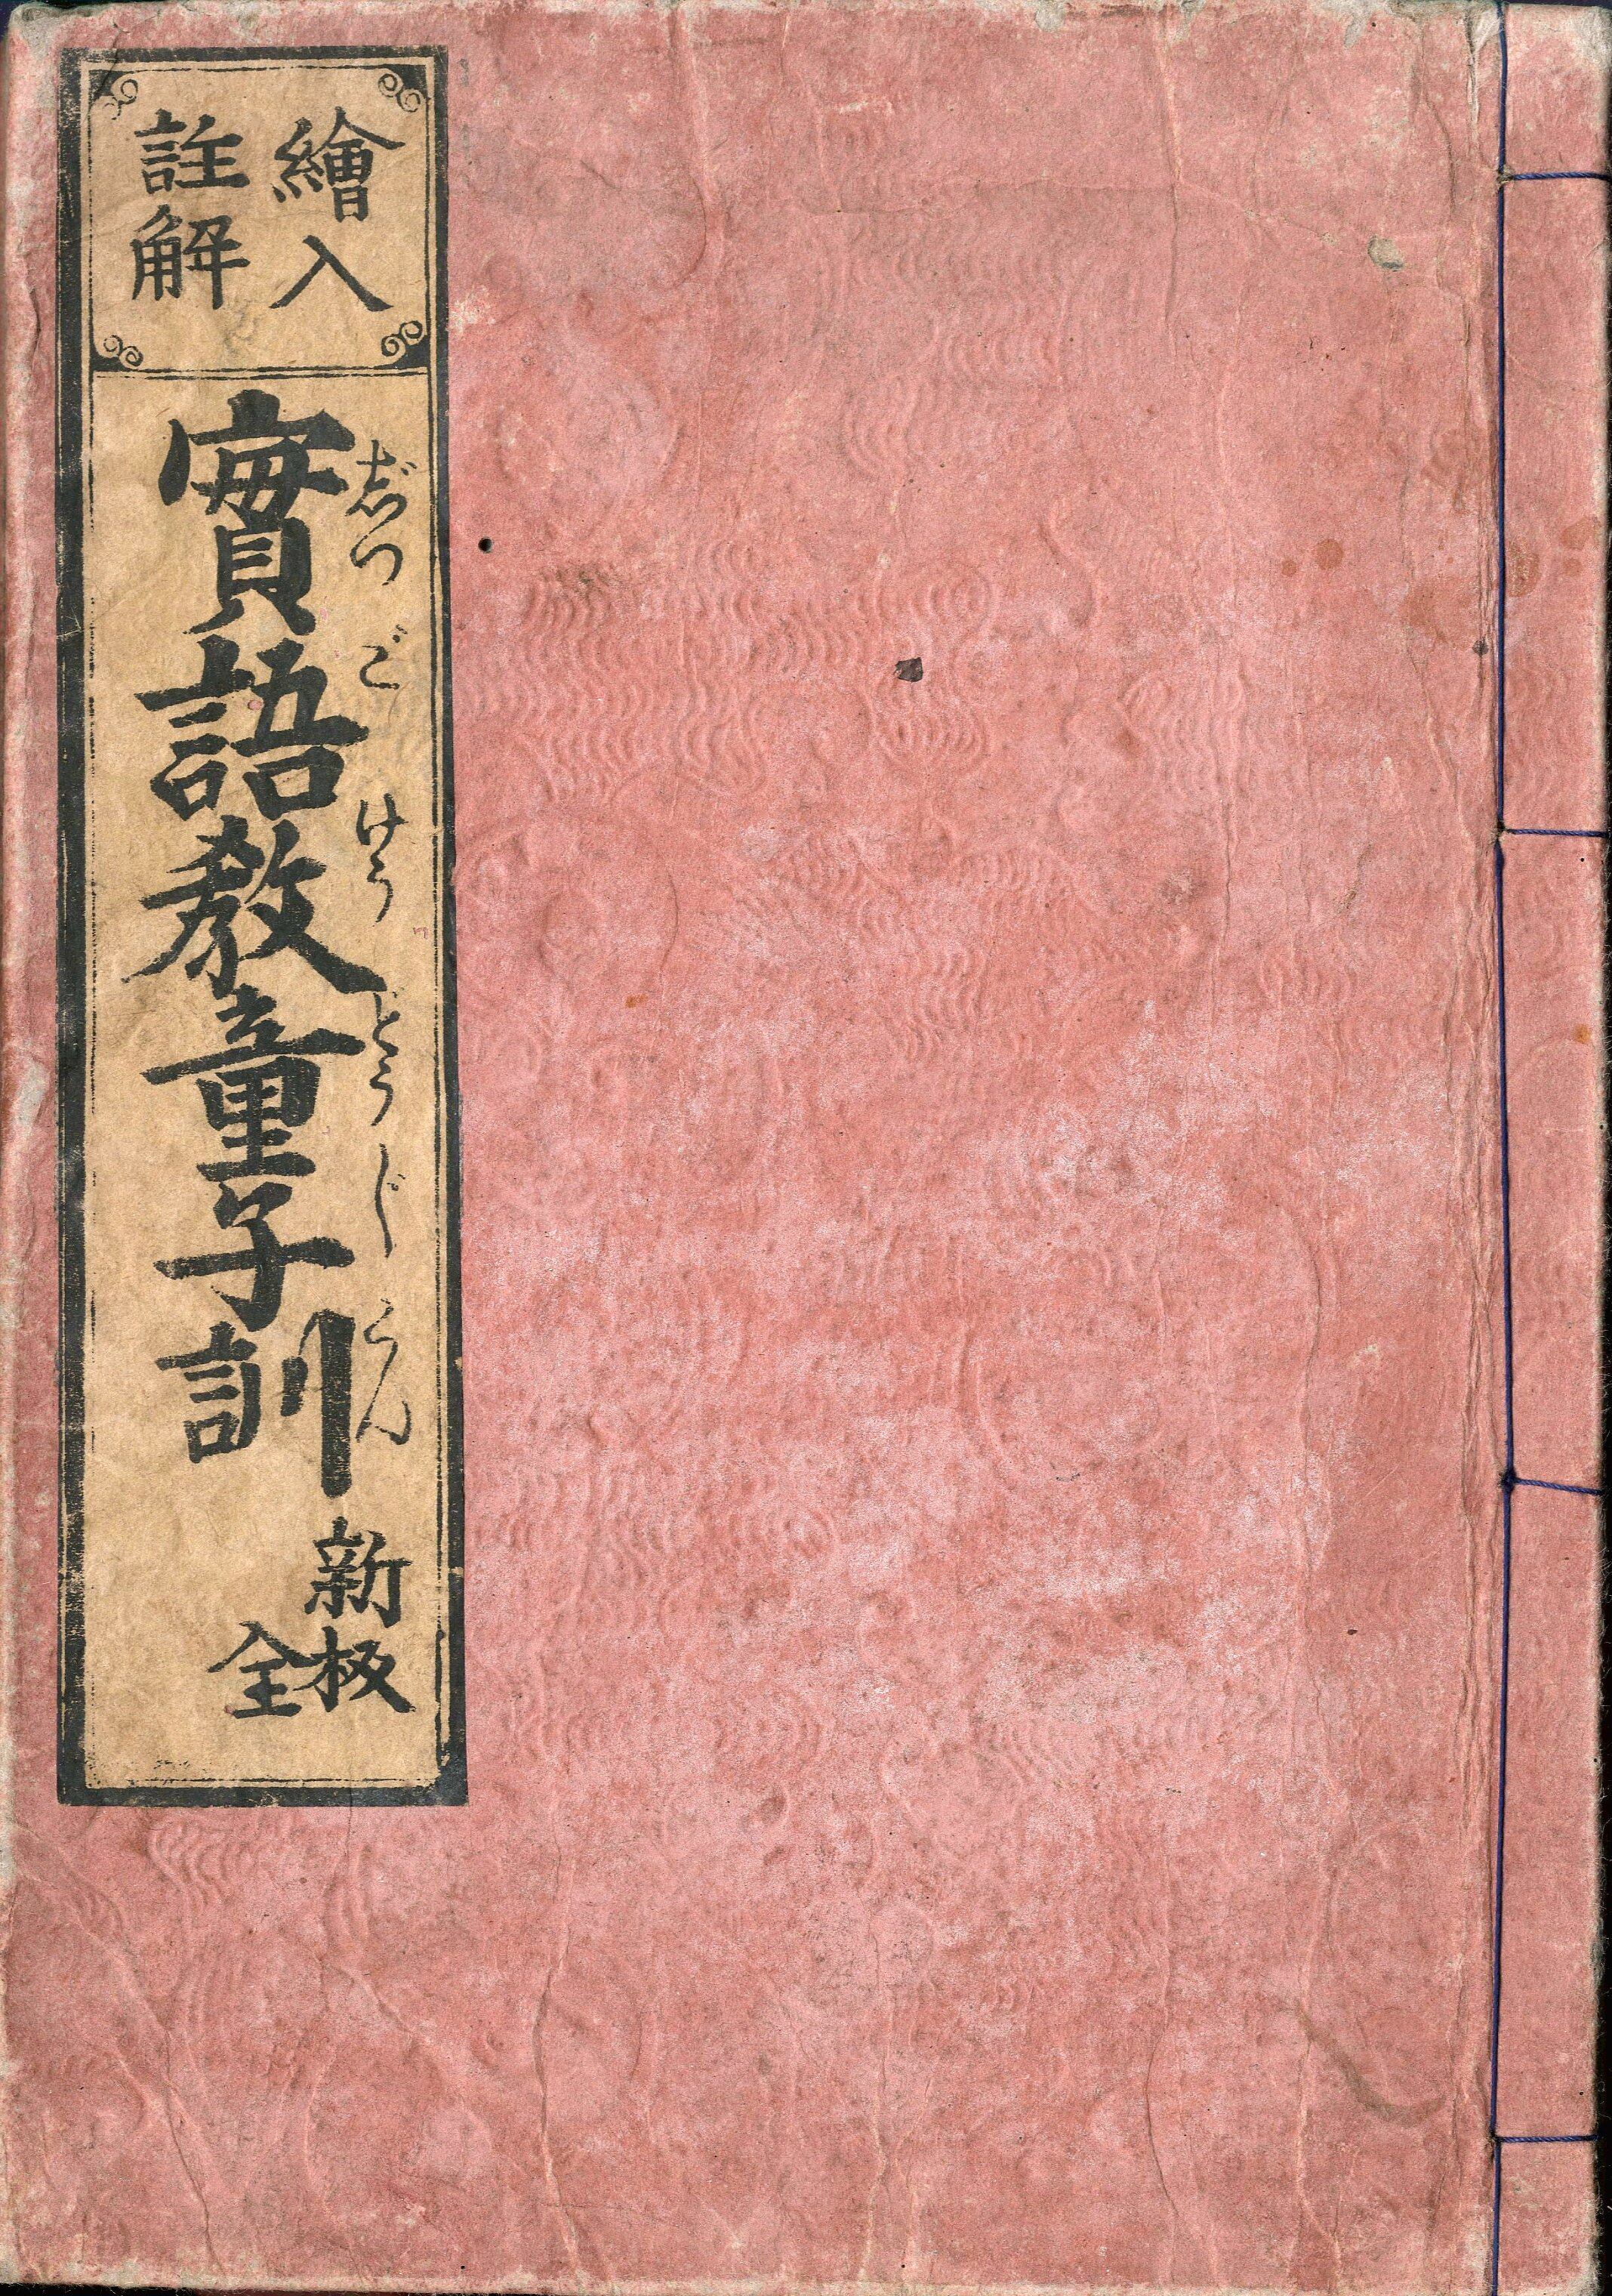 繪入
註解
實語教童子訓
じつごけうどうじくん
新板
全